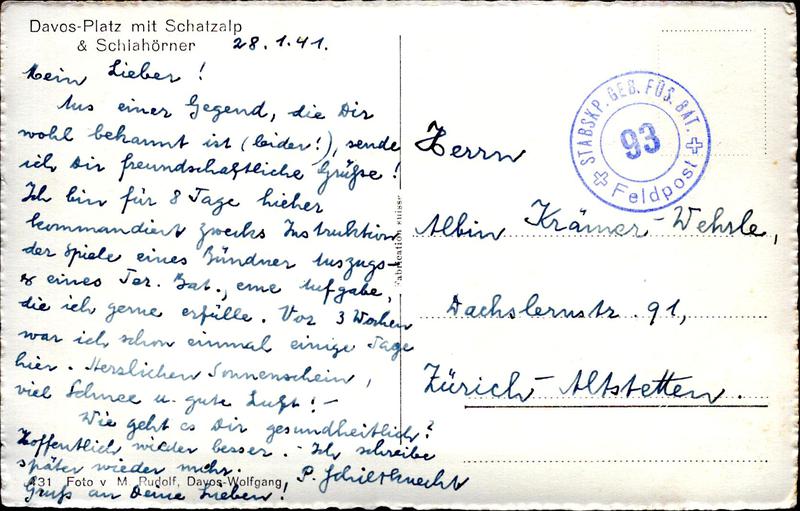 Davos-Platz mit Schatzalp
& Schiahörner
28.1.41.
Mein Lieber!
Aus einer Gegend, die Dir
wohl bekannt ist (leider!), sende
ich Dir freundschaftliche Grüsse!
Ich bin für 8 Tage hieher
kommandiert zwecks Instruktion
der Spiele eines Bündner Auszugs-
& eines Ter. Bat., eine Aufgabe,
die ich gerne erfülle. Vor 3 Wochen
war ich schon einmal einige Tage
hier. Herrlichen Sonnenschein,
viel Schnee u. gute Luft! –
Wie geht es Dir gesundheitlich?
Hoffentlich wieder besser. – Ich schreibe
später wieder mehr.
Gruss an Deine Lieben!
P. Schiltknecht
431 Foto v M. Rudolf, Davos-Wolfgang
Fabrication suisse
STABSKP. GEB. FÜS. BAT.
93
Feldpost
Herrn
Albin Krämer-Wehrle,
Dachslernstr. 91,
Zürich-Altstetten.